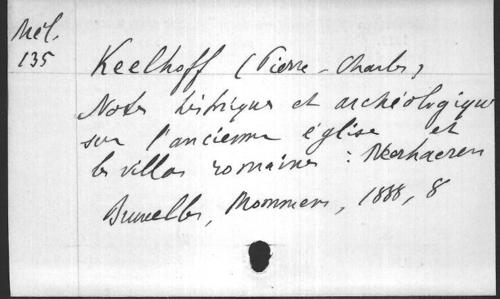 Mél.
135
Keelhoff (Pierre-Charles)
Notes historiques et archéologiques
sur l'ancienne église et
les villas romaines : Neerhaeren
Bruxelles, Mommens, 1888, 8